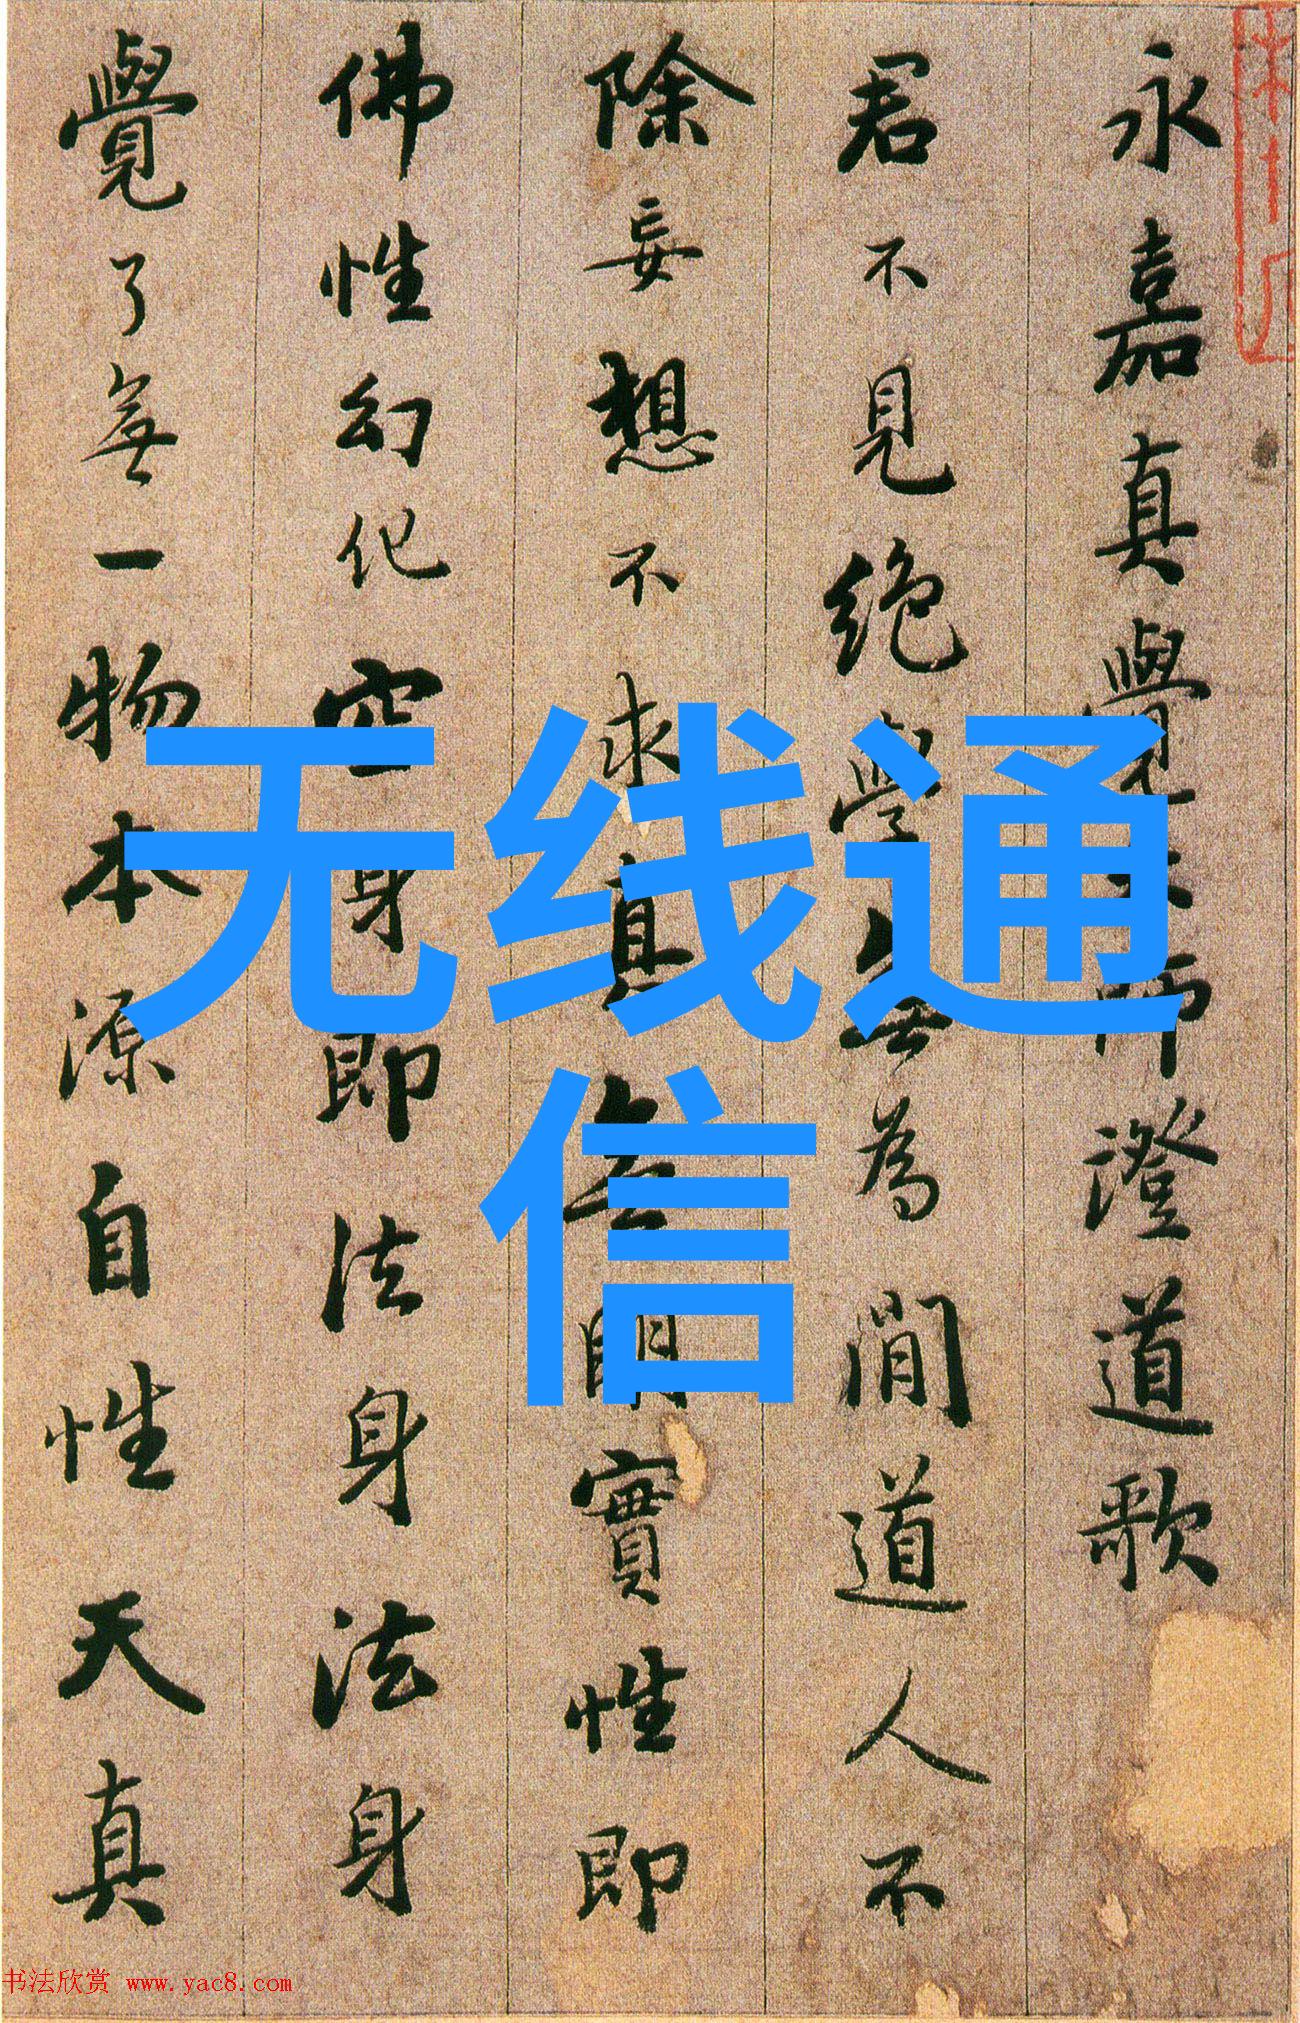 永嘉真覺大師澄道歌
君不見絕學無為閒道人不
除妄想不求真無明實性即
佛性幻化空身即法身法身
覺了無一物本源自性天真
无线通
信
书法欣赏 www.yac8.com